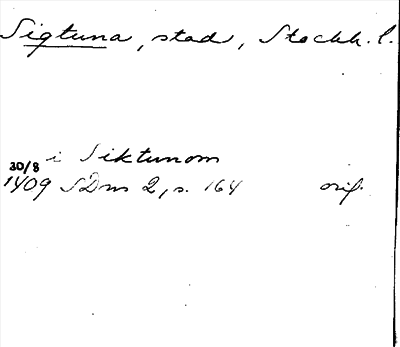 Sigtuna, stad, Stockh. l.
i Siktunom
30/8
1409 SDns 2, s. 164 orig.